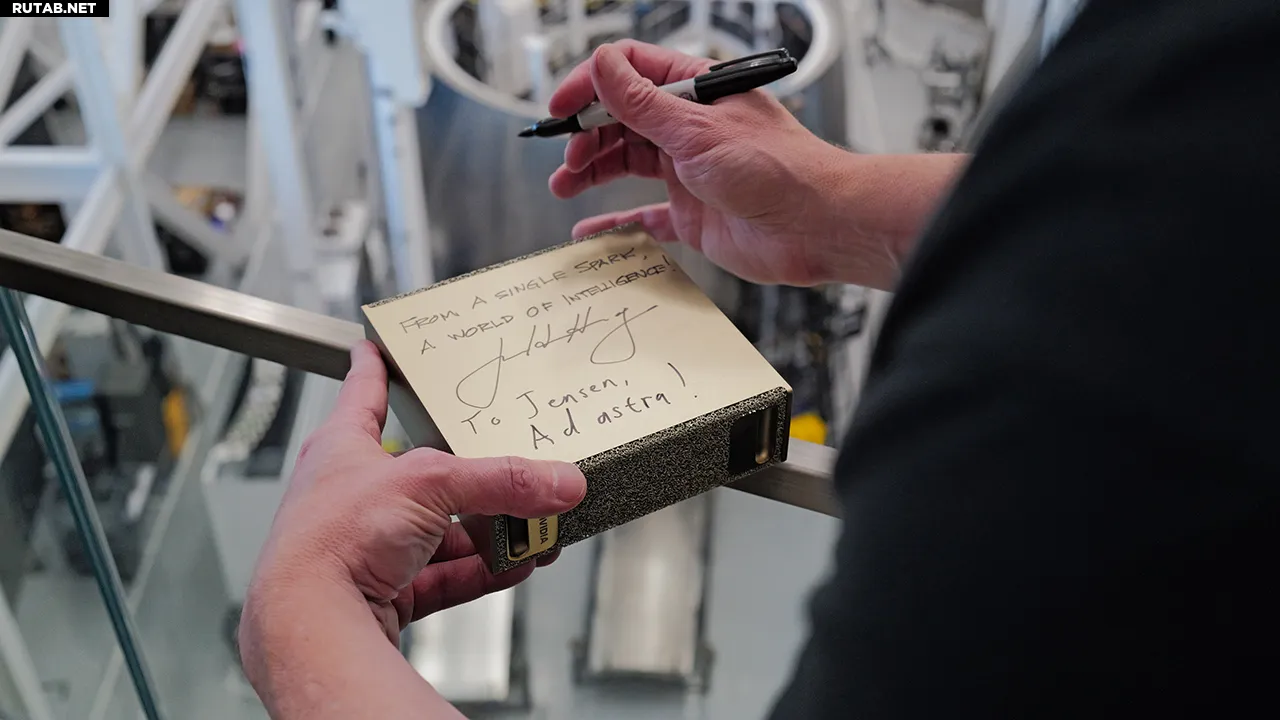 RUTAB.NET
FROM A SINGLE SPARK,
A WORLD OF INTELLIGENCE!
To Jensen,
Ad astra!
NVIDIA